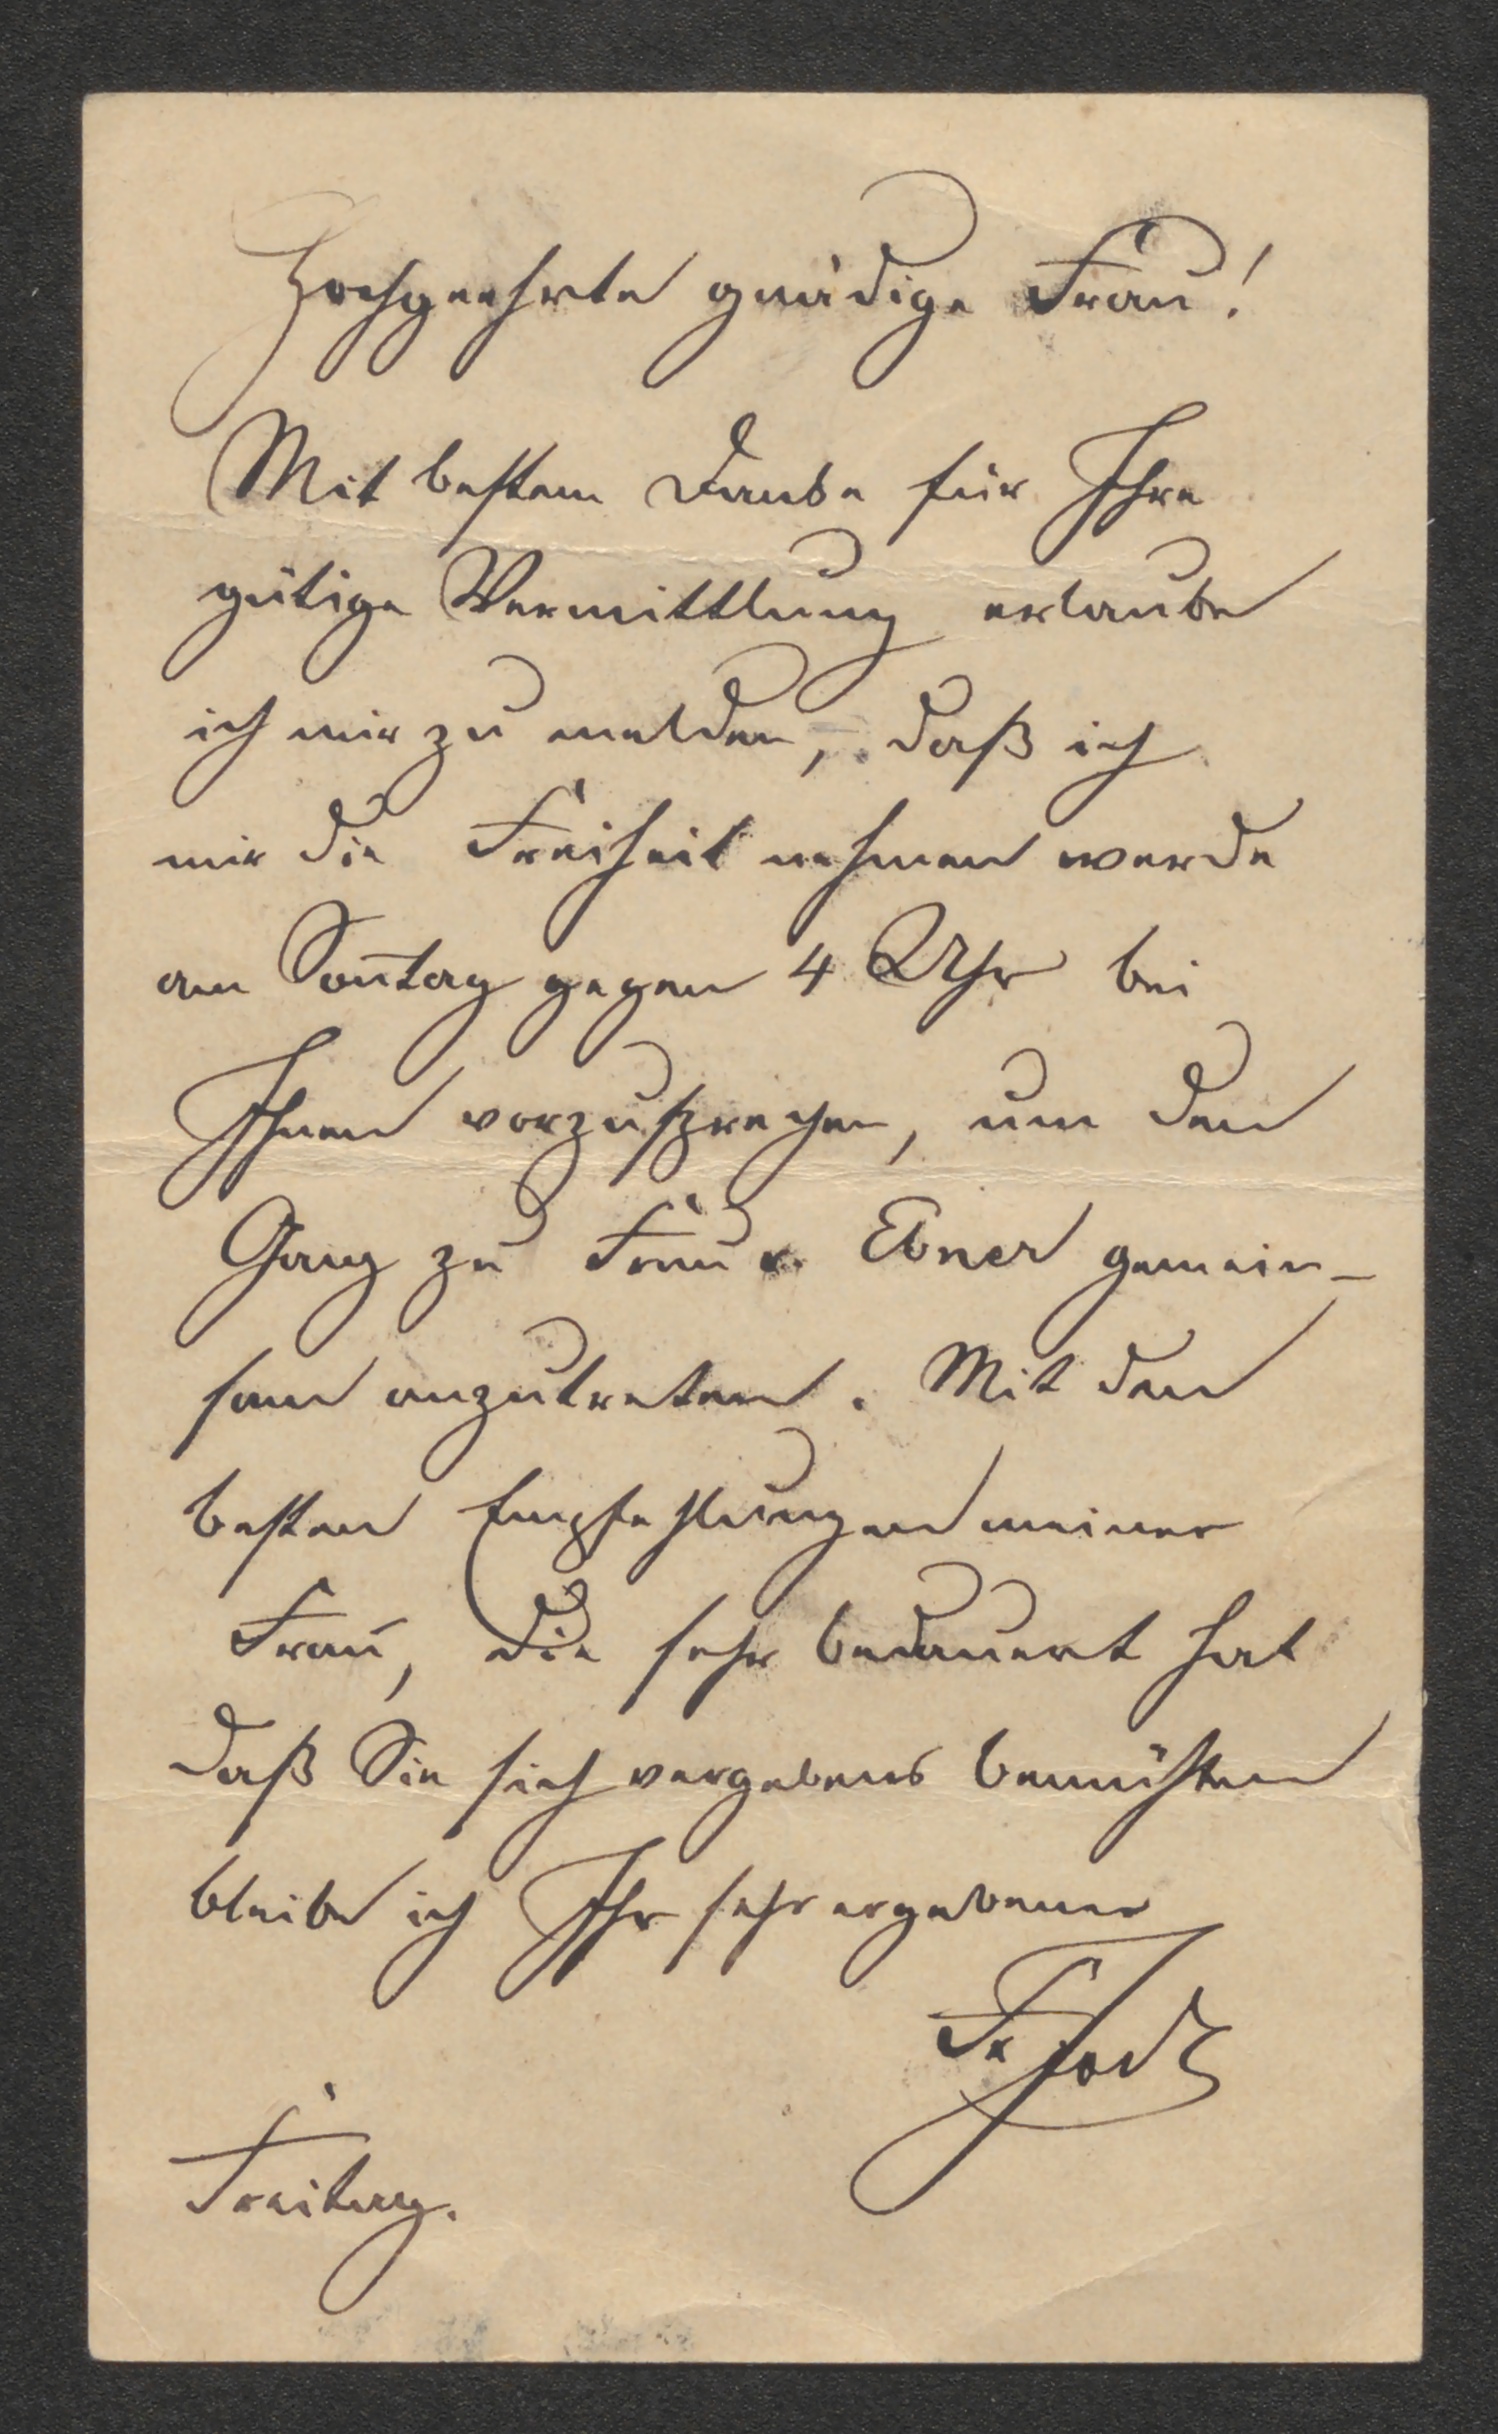 Hochgeehrte gnädige Frau!
Mit bestem Danke für Ihre
gütige Vermittlung erlaube
ich mir zu melden, daß ich
mir die Freiheit nehmen werde
am Son̄tag gegen 4 Uhr bei
Ihnen vorzusprechen, um den
Gang zu Frau v. Ebner gemein-
sam anzutreten. Mit den
besten Empfehlungen meiner
Frau, die sehr bedauert hat
daß Sie sich vergebens bemühten
bleibe ich Ihr sehr ergebener
Fr Jodl
Freitag.